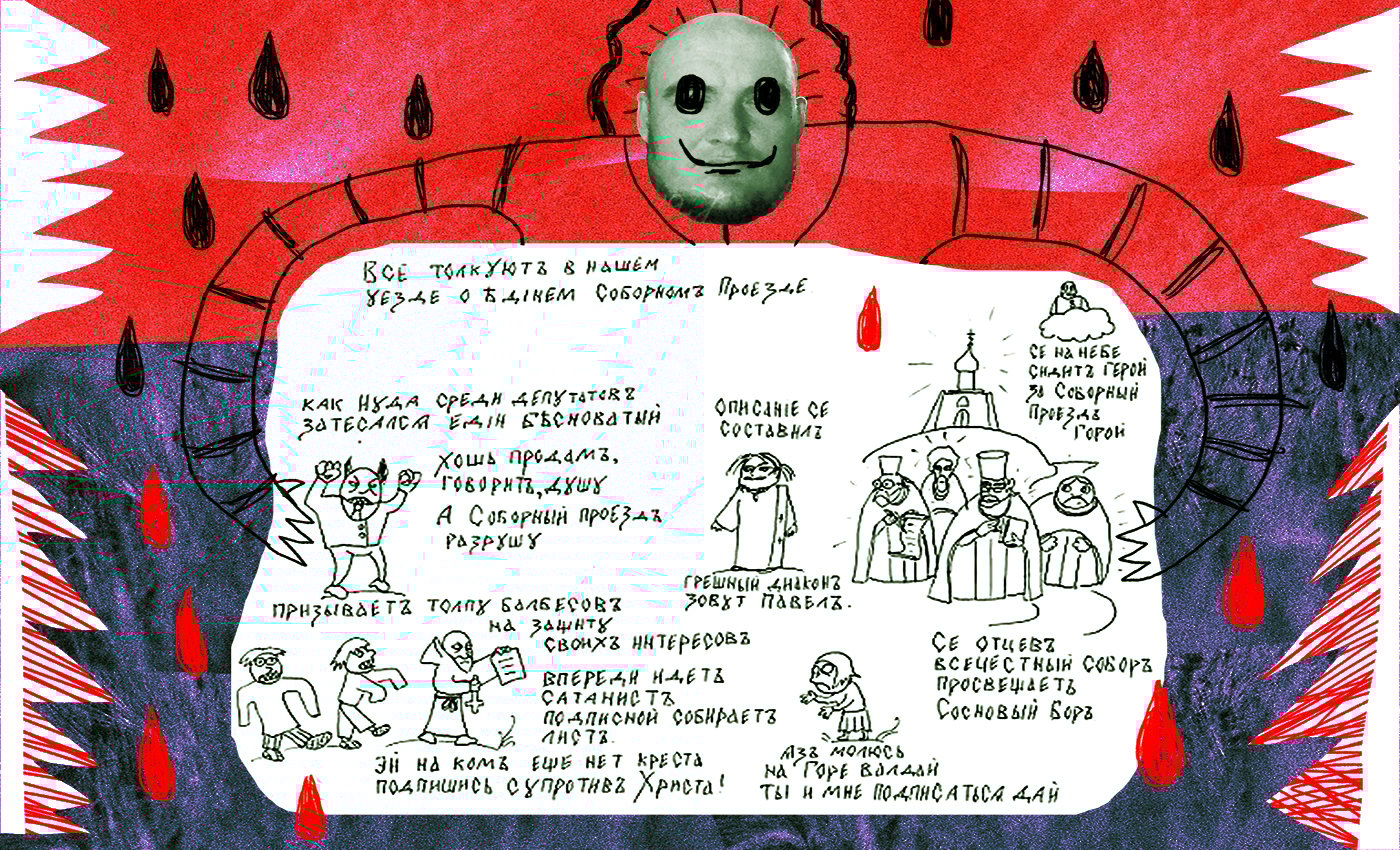 Всѣ толкуютъ в нашем
уезде о ѣдінем Соборномъ Проезде
как Иуда среди депутатовъ
затесался едін бѣсноватый
Хошь продамъ,
говоритъ, душу
А Соборный проездъ
разрушу
призываетъ толпу балбесовъ
на защиту
своихъ интересовъ
впереди идетъ
сатанистъ
подписной собираетъ
листъ.
эй на комъ еще нет креста
подпишись супротивъ Христа!
описаніе се
составилъ
грешный диаконъ
зовут Павелъ.
се на небе
сидитъ герой
за Соборный
Проездъ
горой
Се отцевъ
всечестный соборъ
просвещаетъ
Сосновый Боръ
Язъ молюсь
на горе Валдай
ты и мне подписаться дай